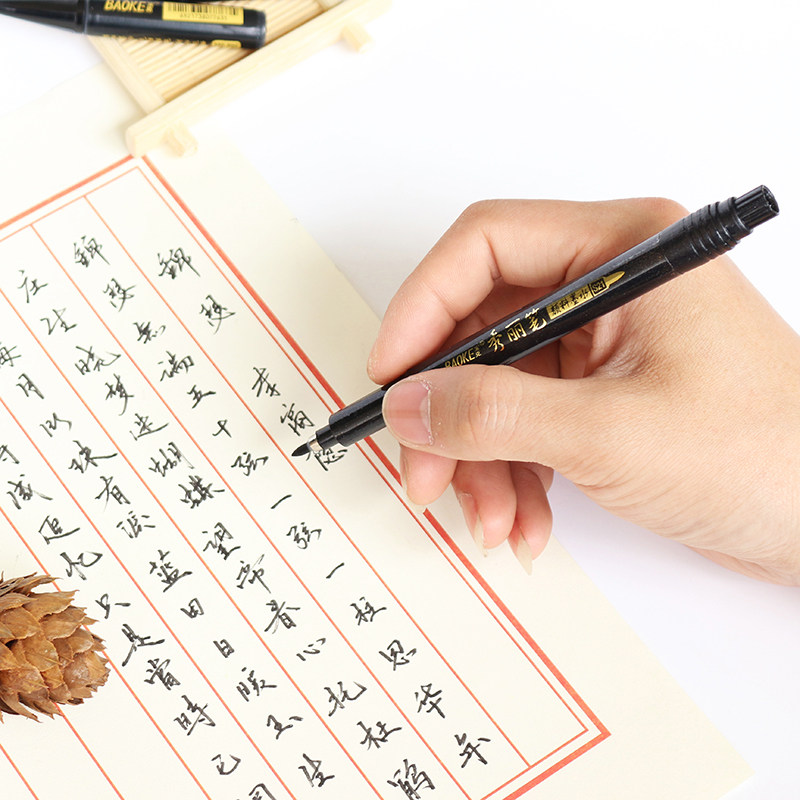 錦瑟 李商隐
錦瑟無端五十弦一弦一柱思华年
庄生晓梦迷蝴蝶望帝春心托杜鹃
海月明珠有泪蓝田日暖玉生
待成追忆只是當時已惘
BAOKE 秀丽笔
BAOKE